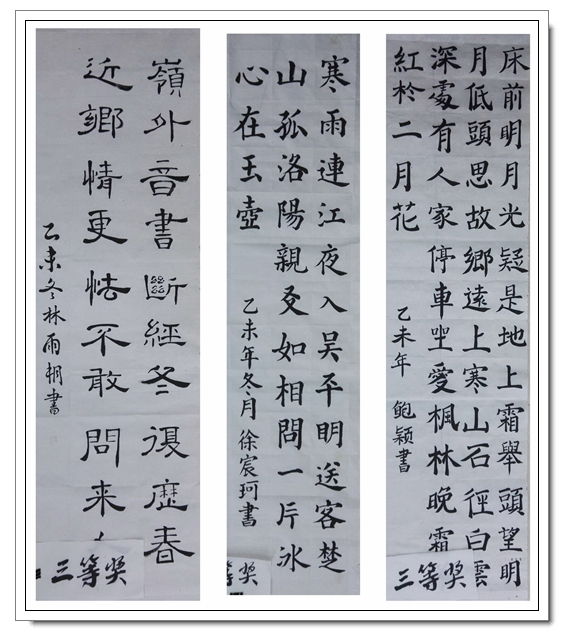 床前明月光疑是地上霜舉頭望明
月低頭思故鄉遠上寒山石徑白雲
深處有人家停車坐愛楓林晚霜
紅於二月花
乙未年 鮑颖書
三等奖
寒雨連江夜入吴平明送客楚
山孤洛陽親友如相問一片冰
心在玉壺
乙未年冬月徐宸珂書
等奖
嶺外音書斷經冬復歷春
近鄉情更怯不敢問来
乙未冬林雨桐書
三等奖